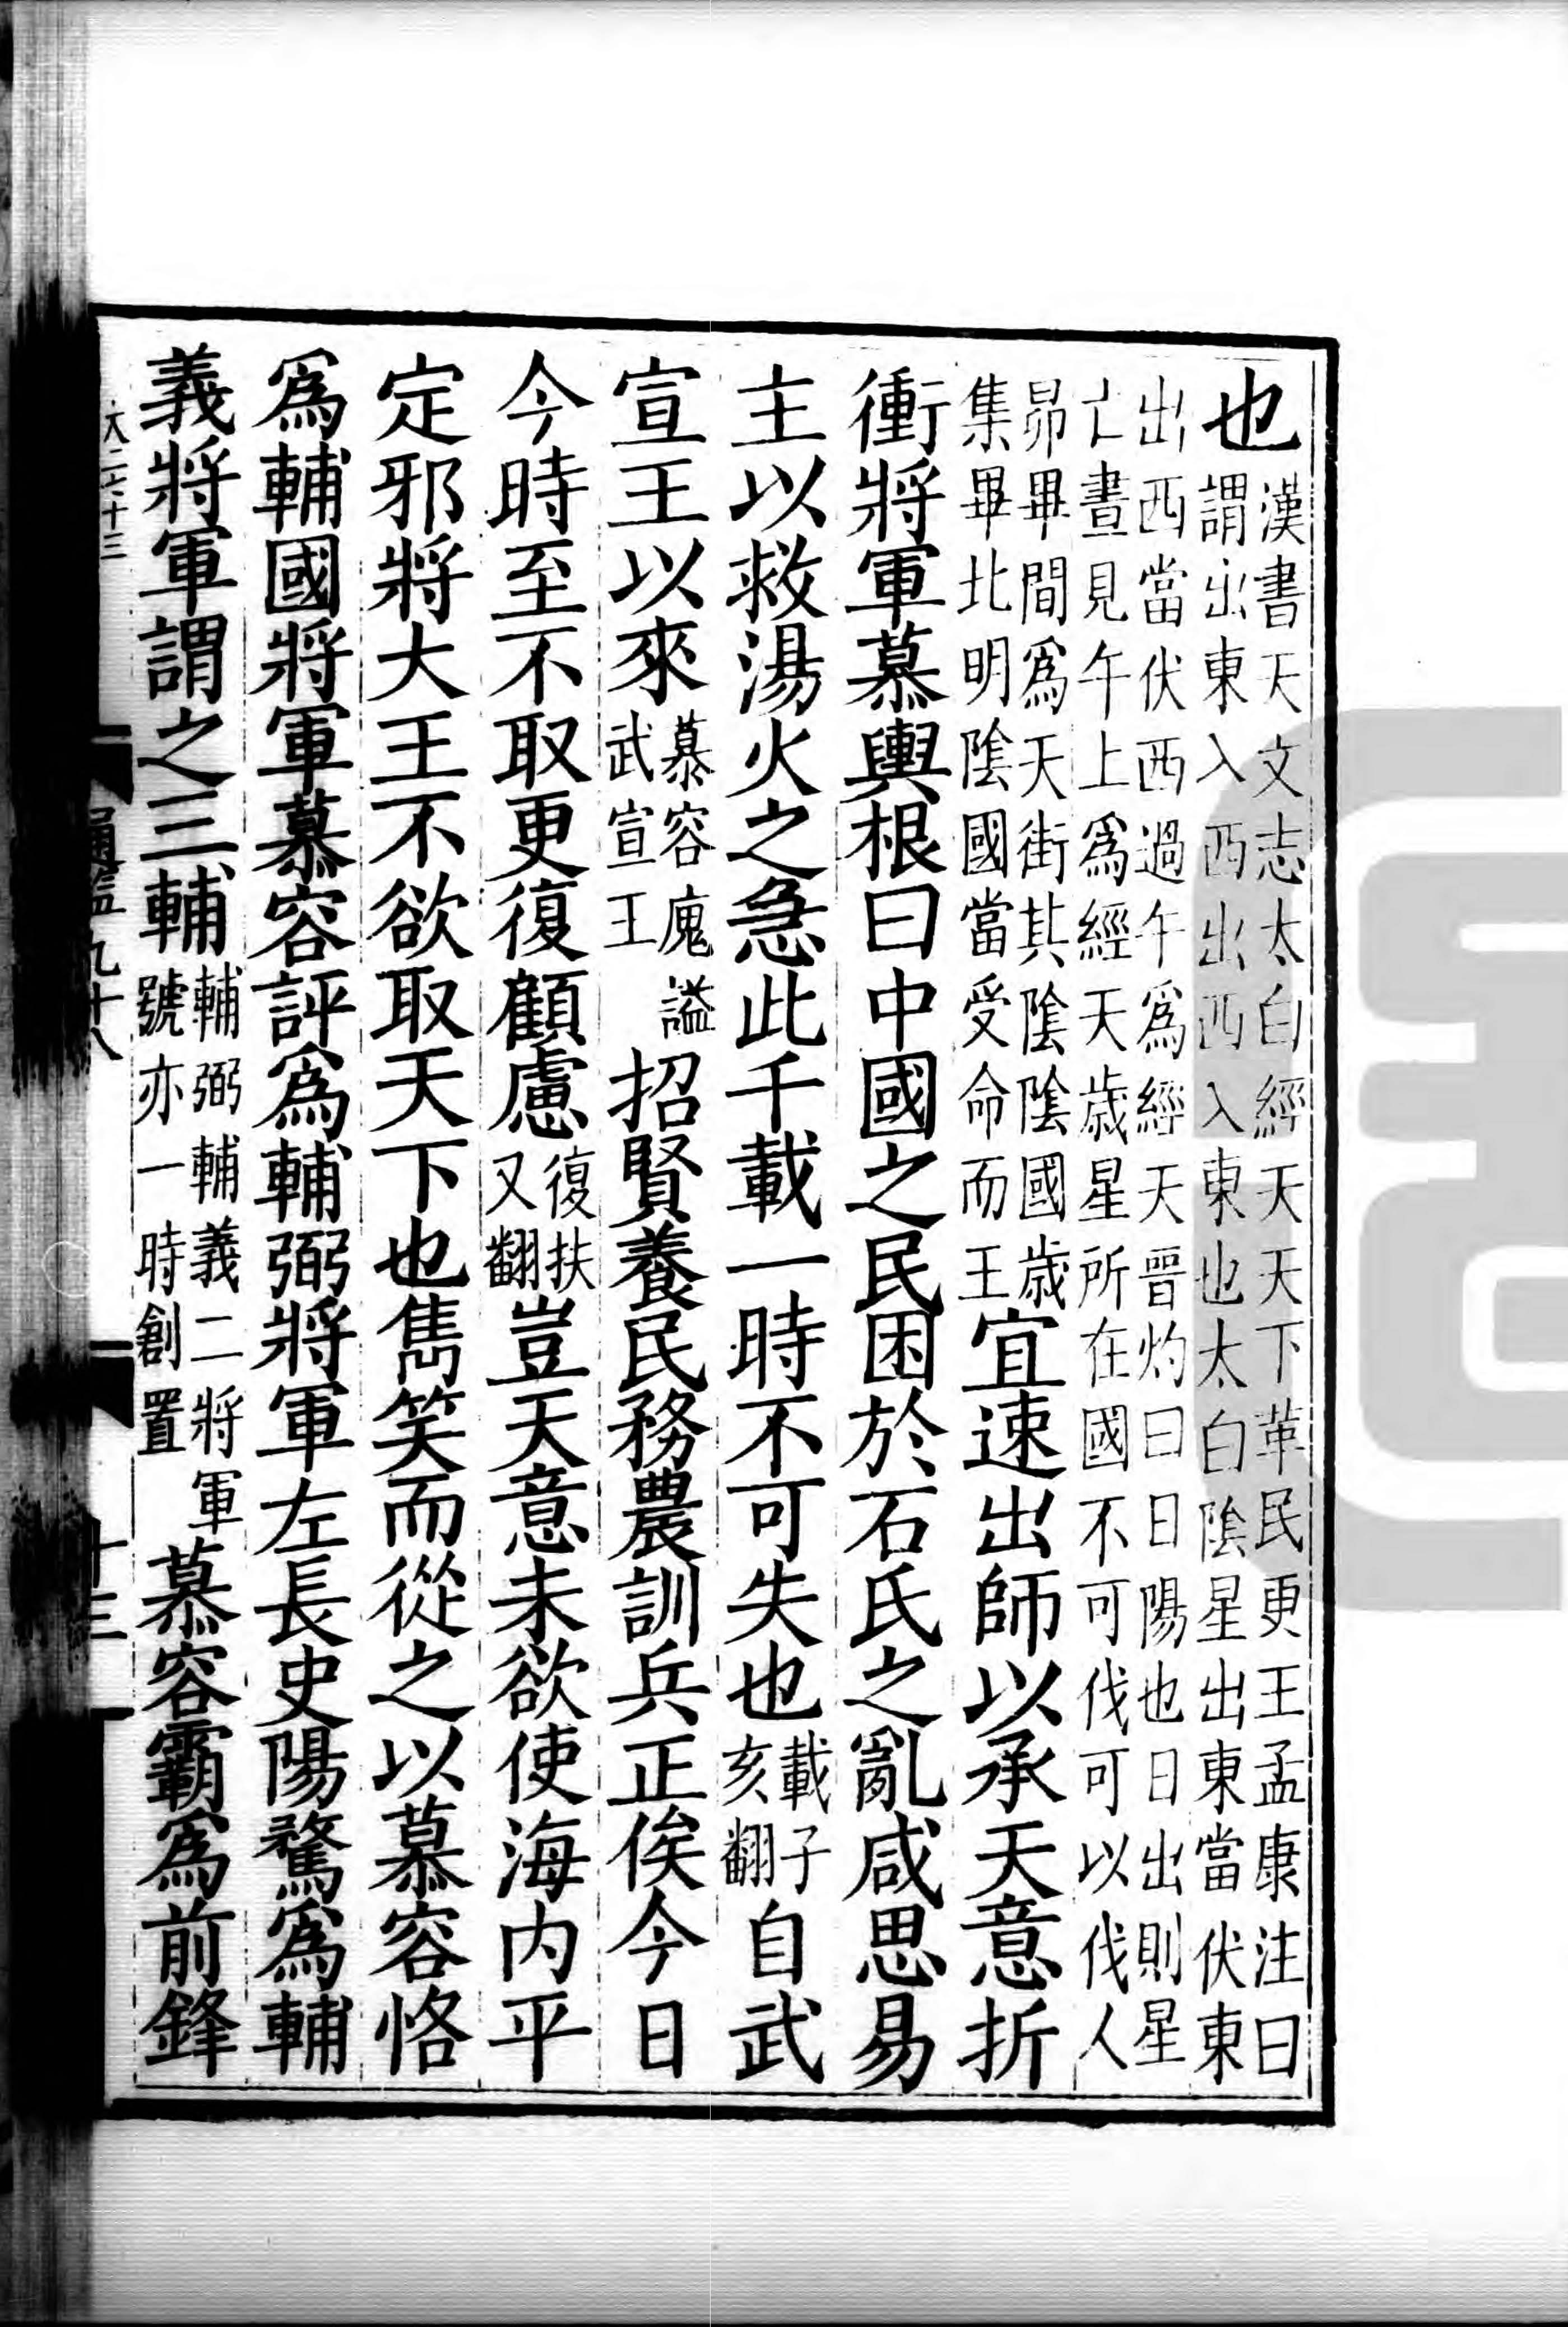 也漢書天文志太白經天天下革民更王孟康注曰謂出東入西出西入東也太白陰星出東當伏東
出西當伏西過午爲經天晉灼曰日陽也日出則星亡晝見午上爲經天歲星所在國不可伐可以伐人
昴畢間爲天街其陰陰國歲集畢北明陰國當受命而王宜速出師以承天意折
衝將軍慕輿根曰中國之民困於石氏之亂咸思易
主以救湯火之急此千載一時不可失也載子亥翻自武
宣王以來慕容廆謚武宣王招賢養民務農訓兵正俟今日
今時至不取更復顧慮復扶又翻豈天意未欲使海内平
定邪將大王不欲取天下也儁笑而從之以慕容恪
爲輔國將軍慕容評爲輔弼將軍左長史陽騖爲輔
義將軍謂之三輔輔弼輔義二將軍號亦一時創置慕容霸爲前鋒
通鑑九十八
十三